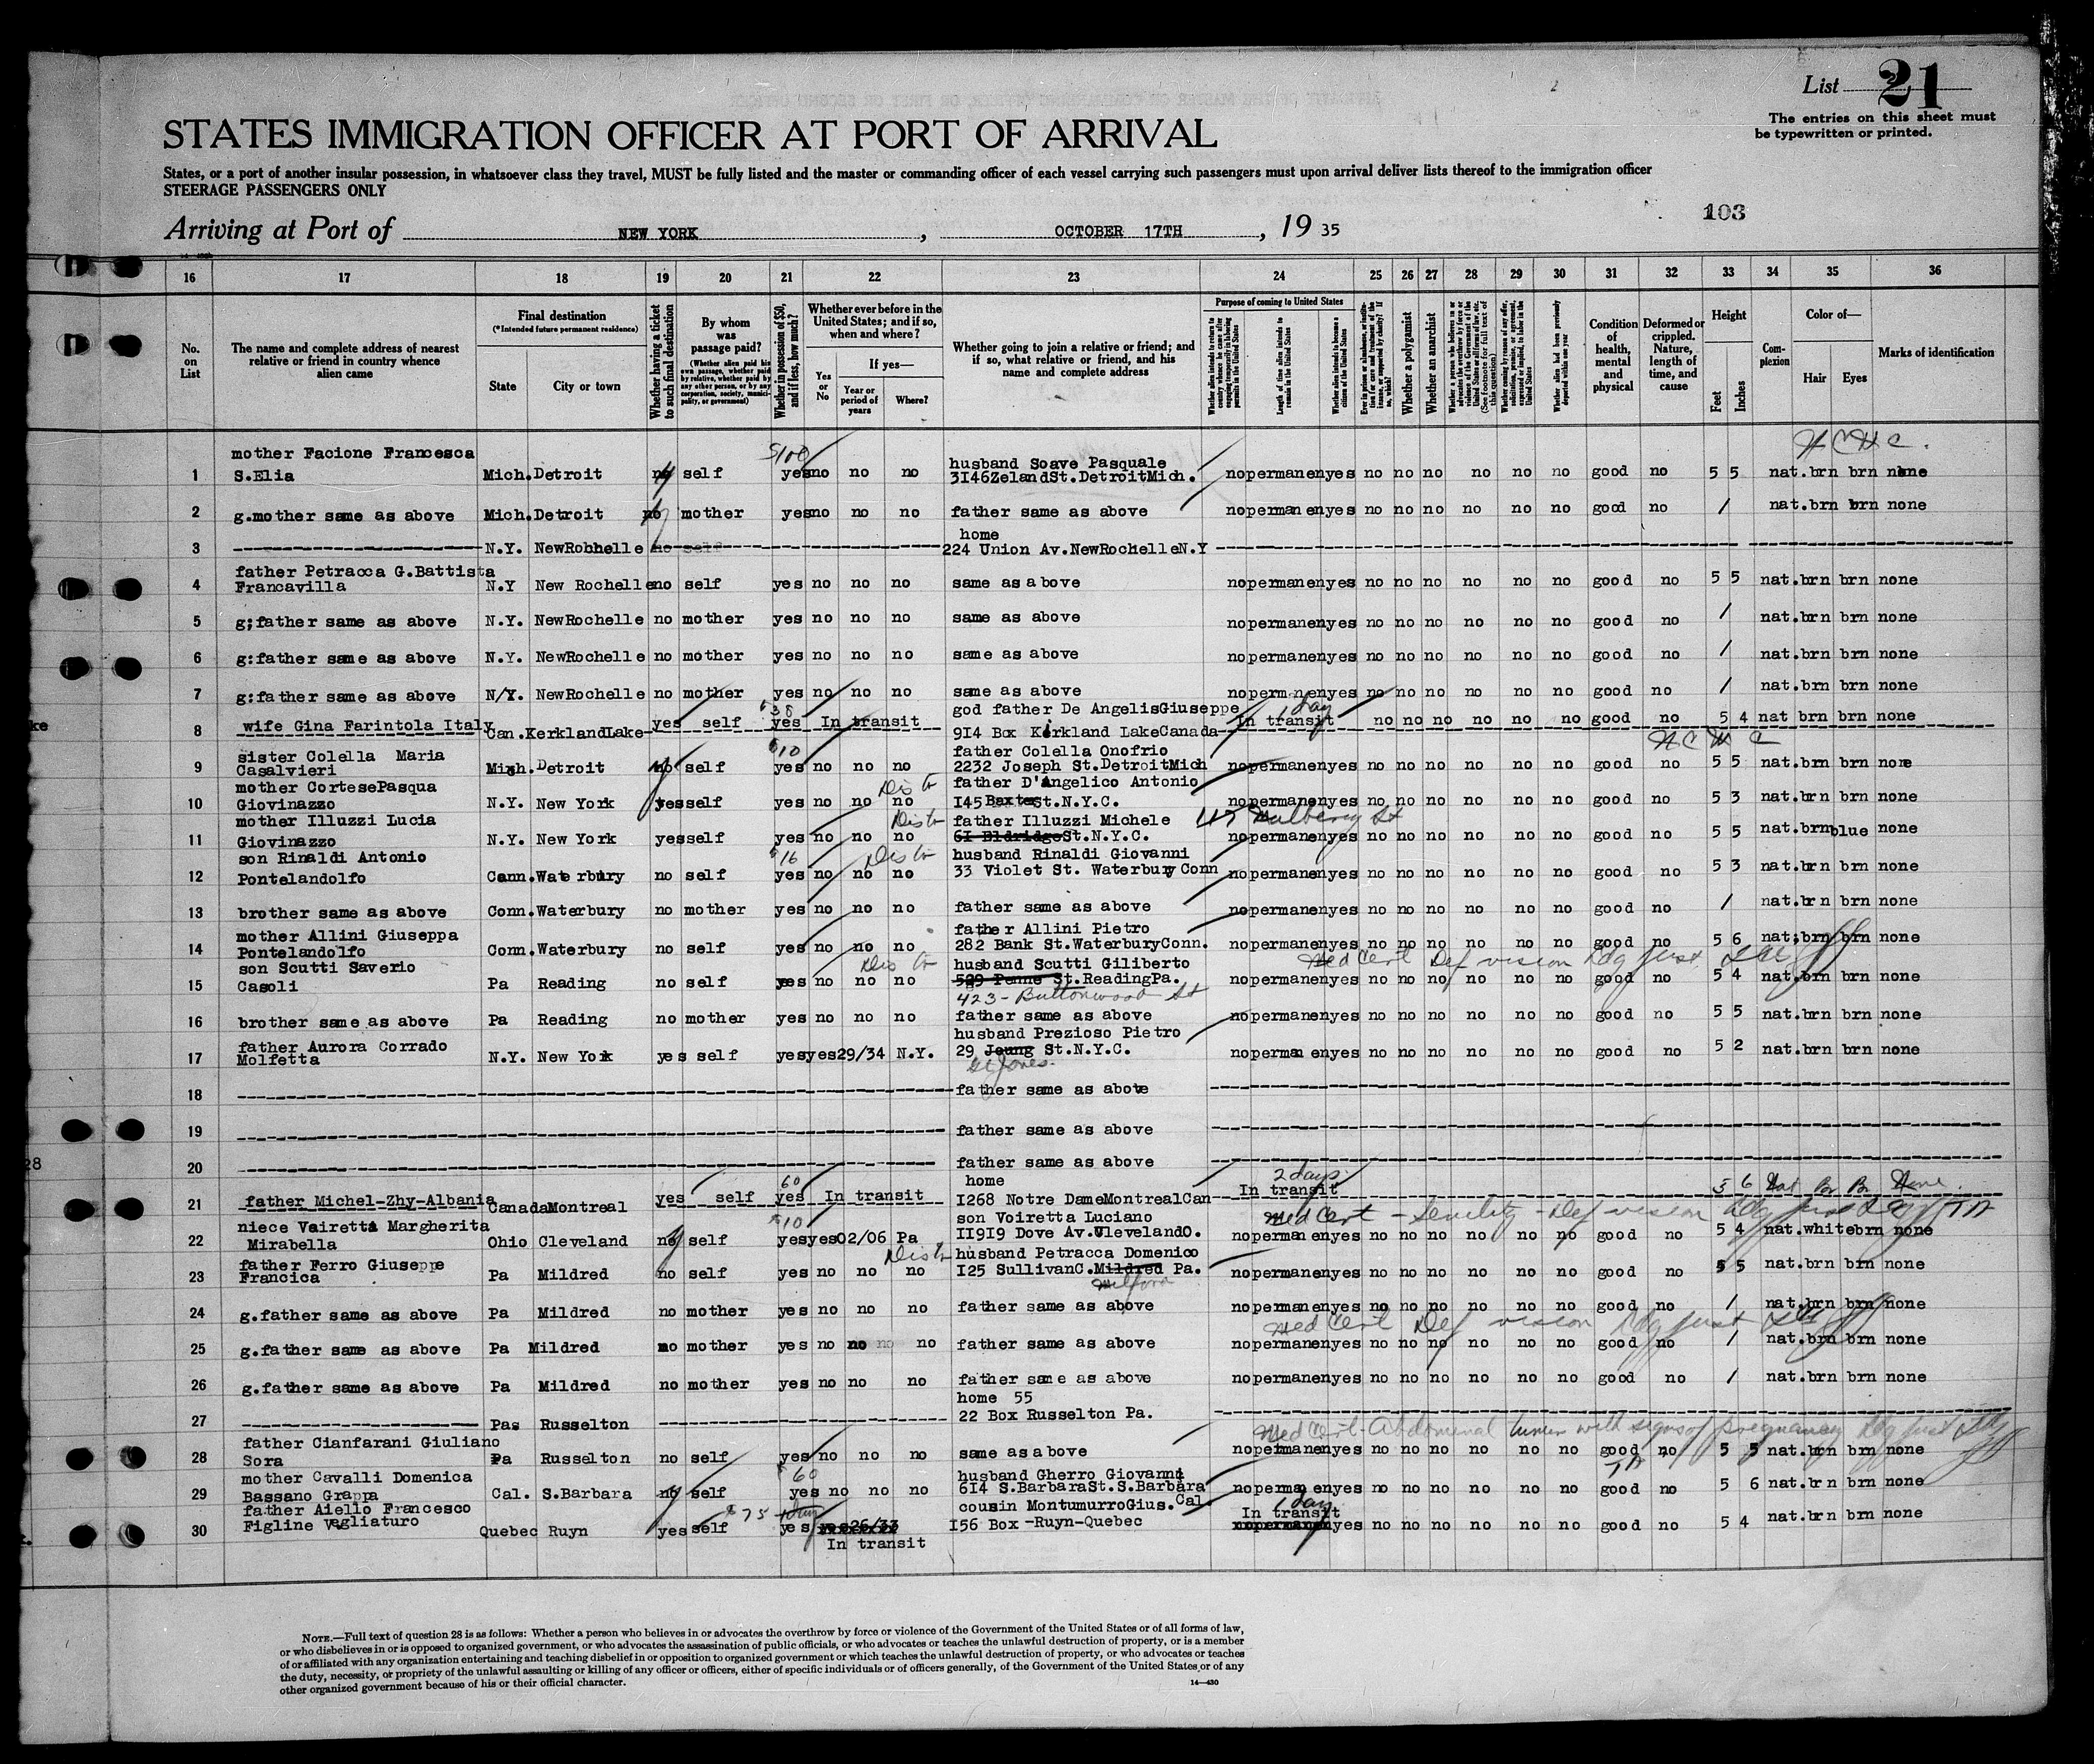 List 21
The entries on this sheet must
be typewritten or printed.
STATES IMMIGRATION OFFICER AT PORT OF ARRIVAL
States, or a port of another insular possession, in whatsoever class they travel, MUST be fully listed and the master or commanding officer of each vessel carrying such passengers must upon arrival deliver lists thereof to the immigration officer
STEERAGE PASSENGERS ONLY
103
Arriving at Port of NEW YORK , OCTOBER 17TH , 19 35
16 17 18 19 20 21 22 23 24 25 26 27 28 29 30 31 32 33 34 35 36
No. on List
The name and complete address of nearest relative or friend in country whence alien came
Final destination
(*Intended future permanent residence)
State
City or town
Whether having a ticket to such final destination
By whom was passage paid?
(Whether alien paid his own passage, whether paid by relative, whether paid by any other person, or by any corporation, society, municipality, or government)
Whether in possession of $50, and if less, how much?
Whether ever before in the United States; and if so, when and where?
Yes or No
If yes—
Year or period of years
Where?
Whether going to join a relative or friend; and if so, what relative or friend, and his name and complete address
Purpose of coming to United States
Whether alien intends to return to country whence he came after engaging temporarily in laboring pursuits in the United States
Length of time alien intends to remain in the United States
Whether alien intends to become a citizen of the United States
Whether a polygamist
Whether an anarchist
Condition of health, mental and physical
Deformed or crippled. Nature, length of time, and cause
Height
Feet
Inches
Complexion
Color of—
Hair
Eyes
Marks of identification
mother Facione Francesca $100
1 S.Elia Mich. Detroit no self yes no no no husband Soave Pasquale
3146 Zeland St. Detroit Mich. no permanen yes no no no no no no good no 5 5 nat. brn brn none
2 g.mother same as above Mich. Detroit no mother yes no no no father same as above no perman en yes no no no no no no good no / nat. brn brn none
home
3 N.Y. NewRobhelle no self 224 Union Av. NewRochelle N.Y
father Petracca G.Battista
4 Francavilla N.Y New Rochelle no self yes no no no same as above no permanen yes no no no no no no good no 5 5 nat. brn brn none
5 g;father same as above N.Y. NewRochelle no mother yes no no no same as above no permanen yes no no no no no no good no / nat. brn brn none
6 g:father same as above N.Y. NewRochelle no mother yes no no no same as above no permanen yes no no no no no no good no / nat. brn brn none
7 g:father same as above N/Y. NewRochelle no mother yes no no no same as above no perm nen yes no no no no no no good no / nat. brn brn none
$38 god father De Angelis Giuseppe 1 day
8 wife Gina Farintola Italy Can. Kerkland Lake yes self yes In transit 914 Box Kirkland Lake Canada In transit no no no no no no good no 5 4 nat brn brn none
sister Colella Maria $10 father Colella Onofrio
9 Casalvieri Mich. Detroit no self yes no no no 2232 Joseph St. Detroit Mich no permanen yes no no no no no no good no 5 5 nat. brn brn none
mother Cortese Pasqua father D'Angelico Antonio
10 Giovinazzo N.Y. New York yes self yes no no no 145 Baxter St. N.Y.C. no permanen yes no no no no no no good no 5 3 nat. brn brn none
mother Illuzzi Lucia father Illuzzi Michele 117 Mulberry St
11 Giovinazzo N.Y. New York yes self yes no no no 61 Eldridge St. N.Y.C. no permanen yes no no no no no no good no 5 5 nat. brn blue none
son Rinaldi Antonio $16 husband Rinaldi Giovanni
12 Pontelandolfo Conn. Waterbury no self yes no no no 33 Violet St. Waterbury Conn no permanen yes no no no no no no good no 5 3 nat. brn brn none
13 brother same as above Conn. Waterbury no mother yes no no no father same as above no permanen yes no no no no no no good no / nat. brn brn none
mother Allini Giuseppa father Allini Pietro
14 Pontelandolfo Conn. Waterbury no self yes no no no 282 Bank St. Waterbury Conn. no permanen yes no no no no no no good no 5 6 nat; brn brn none
son Scutti Saverio husband Scutti Giliberto Med Cert Def vision
15 Casoli Pa Reading no self yes no no no 529 Penne St. Reading Pa. no permanen yes no no no no no no good no 5 4 nat. brn brn none
423 - Buttonwood St
16 brother same as above Pa Reading no mother yes no no no father same as above no permanen yes no no no no no no good no 5 5 nat. brn brn none
father Aurora Corrado husband Prezioso Pietro
17 Molfetta N.Y. New York yes self yes yes 29/34 N.Y. 29 Joung St. N.Y.C. no perman en yes no no no no no no good no 5 2 nat. brn brn none
Gt Jones
18 father same as above
19 father same as above
20 father same as above
60 home 2 days
21 father Michel-Zhy-Albania Canada Montreal yes self yes In transit 1268 Notre Dame Montreal Can In transit 5 6 Nat Br Br None
niece Vairetta Margherita $10 son Voiretta Luciano Med Cert - Senility - Def vision
22 Mirabella Ohio Cleveland no self yes yes 02/06 Pa 11919 Dove Av. Cleveland O. no permanen yes no no no no no no good no 5 4 nat. white brn none
father Ferro Giuseppe husband Petracca Domenico
23 Francica Pa Mildred no self yes no no no 125 Sullivan C. Mildred Pa. no permanen yes no no no no no no good no 5 5 nat. brn brn none
Milford
24 g.father same as above Pa Mildred no mother yes no no no father same as above no permanen yes no no no no no no good no / nat. brn brn none
Med Cert Def vision
25 g.father same as above Pa Mildred no mother yes no no no no father same as above no permanen yes no no no no no no good no / nat. brn brn none
26 g.father same as above Pa Mildred no mother yes no no no father same as above no permanen yes no no no no no no good no / nat. brn brn none
home 55
27 Pas Russelton 22 Box Russelton Pa.
father Cianfarani Giuliano Med Cert - Abdominal tumor with signs of pregnancy
28 Sora Pa Russelton no self yes no no no same as above no permanen yes no no no no no no good no 5 5 nat. brn brn none
mother Cavalli Domenica $60 husband Gherro Giovanni
29 Bassano Grappa Cal. S.Barbara no self yes no no no 614 S.Barbara St. S.Barbara Cal. no permanen yes no no no no no no good no 5 6 nat. brn brn none
father Aiello Francesco $75 cousin Montumurro Gius. 1 day
In transit
30 Figline Vegliaturo Quebec Ruyn yes self yes yes 26/33 156 Box -Ruyn-Quebec no permanen yes no no no no no no good no 5 4 nat. brn brn none
In transit
NOTE.—Full text of question 28 is as follows: Whether a person who believes in or advocates the overthrow by force or violence of the Government of the United States or of all forms of law,
or who disbelieves in or is opposed to organized government, or who advocates the assassination of public officials, or who advocates or teaches the unlawful destruction of property, or is a member
of or affiliated with any organization entertaining and teaching disbelief in or opposition to organized government or which teaches the unlawful destruction of property, or who advocates or teaches
the duty, necessity, or propriety of the unlawful assaulting or killing of any officer or officers, either of specific individuals or of officers generally, of the Government of the United States or of any
other organized government because of his or their official character.
14—430